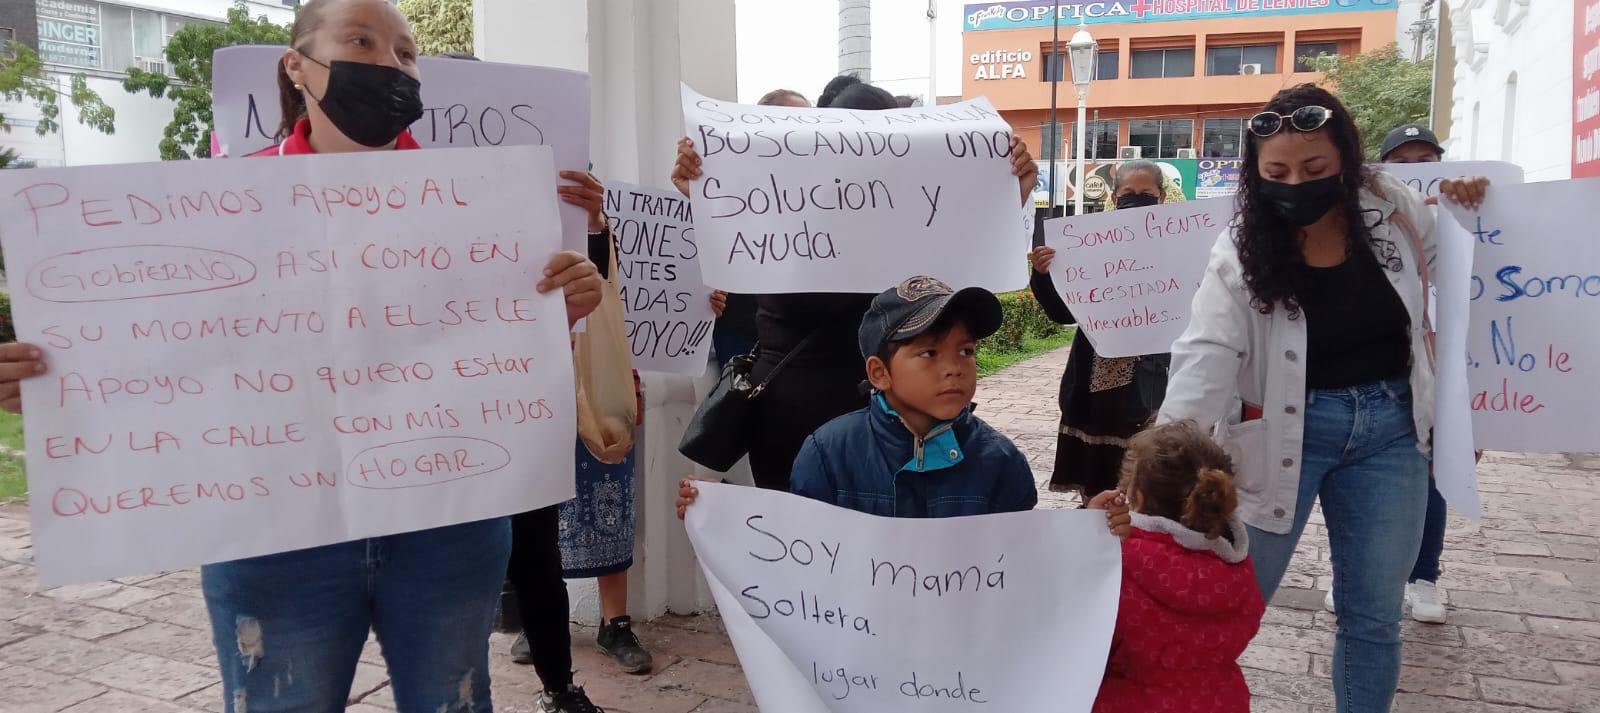 Academia
SINGER
Moderna
OPTICA + HOSPITAL DE LENTES
edificio
ALFA
TROS
PEDIMOS APOYO AL
GOBIERNO, ASI COMO EN
SU MOMENTO A EL SE LE
APOYO. NO QUIERO ESTAR
EN LA CALLE CON MIS HIJOS
QUEREMOS UN HOGAR.
TRATAN
SOMOS FAMILIA
BUSCANDO UNA
SOLUCION y
AYUDA.
SOMOS GENTE
DE PAZ...
NECESITADA
vulnerables...
Somo
No le
adie
Soy mamá
Soltera.
lugar donde